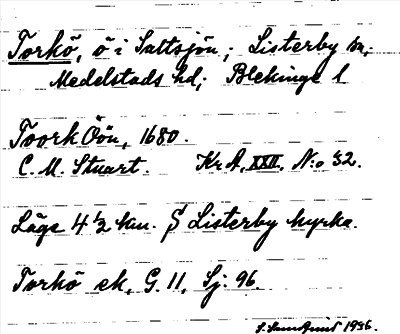 Torkö, ö i Saltsjön; Listerby sn;
Medelstads hd; Blekinge l
Toork Öön, 1680.
C. M. Stuart. Kr A. XXII. N:o 32.
Läge 4 ½ km. S Listerby kyrka.
Torkö ek, G. 11, Sj: 96.
1936.